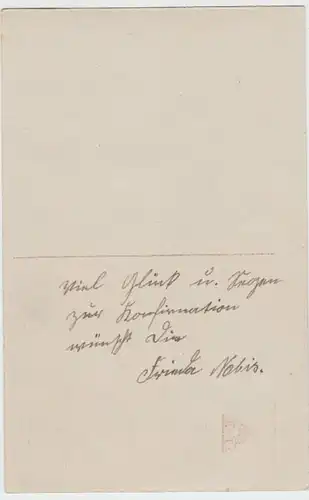 Viel Glück u. Segen
zur Konfirmation
wünscht Die
Frieda Nobis.